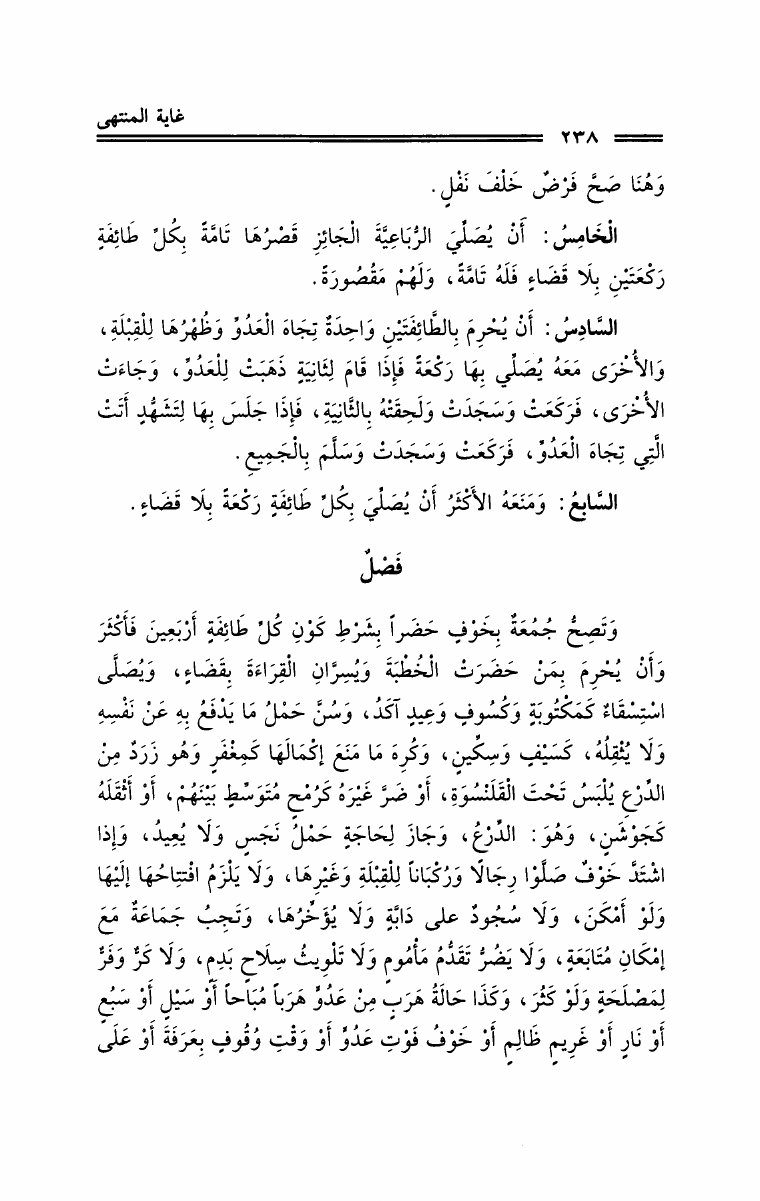 غاية المنتهى
٢٣٨
وَهُنَا صَحَّ فَرْضٌ خَلْفَ نَفْلٍ.
الْخَامِسُ: أَنْ يُصَلِّيَ الرُّبَاعِيَّةَ الْجَائِزِ قَصْرُهَا تَامَّةً بِكُلِّ طَائِفَةٍ
رَكْعَتَيْنِ بِلَا قَضَاءٍ فَلَهُ تَامَّةً، وَلَهُمْ مَقْصُورَةً.
السَّادِسُ: أَنْ يُحْرِمَ بِالطَّائِفَتَيْنِ وَاحِدَةٌ تِجَاهَ الْعَدُوِّ وَظُهْرُهَا لِلْقِبْلَةِ،
وَالأُخْرَى مَعَهُ يُصَلِّي بِهَا رَكْعَةً فَإِذَا قَامَ لِثَانِيَةٍ ذَهَبَتْ لِلْعَدُوِّ، وَجَاءَتْ
الأُخْرَى، فَرَكَعَتْ وَسَجَدَتْ وَلَحِقَتْهُ بِالثَّانِيَةِ، فَإِذَا جَلَسَ بِهَا لِتَشَهُّدٍ أَتَتْ
الَّتِي تِجَاهَ الْعَدُوِّ، فَرَكَعَتْ وَسَجَدَتْ وَسَلَّمَ بِالْجَمِيعِ.
السَّابِعُ: وَمَنَعَهُ الأَكْثَرُ أَنْ يُصَلِّيَ بِكُلِّ طَائِفَةٍ رَكْعَةً بِلَا قَضَاءٍ.
فَصْلٌ
وَتَصِحُّ جُمُعَةٌ بِخَوْفٍ حَضَراً بِشَرْطِ كَوْنِ كُلِّ طَائِفَةٍ أَرْبَعِينَ فَأَكْثَرَ
وَأَنْ يُحْرِمَ بِمَنْ حَضَرَتْ الْخُطْبَةَ وَيُسِرَّانِ الْقِرَاءَةَ بِقَضَاءٍ، وَيُصَلَّى
اسْتِسْقَاءٌ كَمَكْتُوبَةٍ وَكُسُوفٍ وَعِيدٍ آكَدُ، وَسُنَّ حَمْلُ مَا يَدْفَعُ بِهِ عَنْ نَفْسِهِ
وَلَا يُثْقِلُهُ، كَسَيْفٍ وَسِكِّينٍ، وَكُرِهَ مَا مَنَعَ إكْمَالَهَا كَمِغْفَرٍ وَهُو زَرَدٌ مِنْ
الدِّرْعِ يُلْبَسُ تَحْتَ الْقَلَنْسُوَةِ، أَوْ ضَرَّ غَيْرَهُ كَرُمْحٍ مُتَوَسِّطٍ بَيْنَهُمْ، أَوْ أَثْقَلَهُ
كَجَوْشَنٍ، وَهُوَ: الدِّرْعُ، وَجَازَ لِحَاجَةٍ حَمْلُ نَجَسٍ وَلَا يُعِيدُ، وَإِذَا
اشْتَدَّ خَوْفٌ صَلَّوْا رِجَالًا وَرُكْبَاناً لِلْقِبْلَةِ وَغَيْرِهَا، وَلَا يَلْزَمُ افْتِتَاحُهَا إلَيْهَا
وَلَوْ أَمْكَنَ، وَلَا سُجُودٌ على دَابَّةٍ وَلَا يُؤَخِّرُهَا، وَتَجِبُ جَمَاعَةٌ مَعَ
إمْكَانِ مُتَابَعَةٍ، وَلَا يَضُرُّ تَقَدُّمُ مَأْمُومٍ وَلَا تَلْوِيثُ سِلَاحٍ بَدِمٍ، وَلَا كَرٌّ وَفَرٌّ
لِمَصْلَحَةٍ وَلَوْ كَثُرَ، وَكَذَا حَالَةُ هَرَبٍ مِنْ عَدُوٍّ هَرَباً مُبَاحاً أَوْ سَيْلٍ أَوْ سَبُعٍ
أَوْ نَارٍ أَوْ غَرِيمٍ ظَالِمٍ أَوْ خَوْفُ فَوْتِ عَدُوٍّ أَوْ وَقْتِ وُقُوفٍ بِعَرَفَةَ أَوْ عَلَى